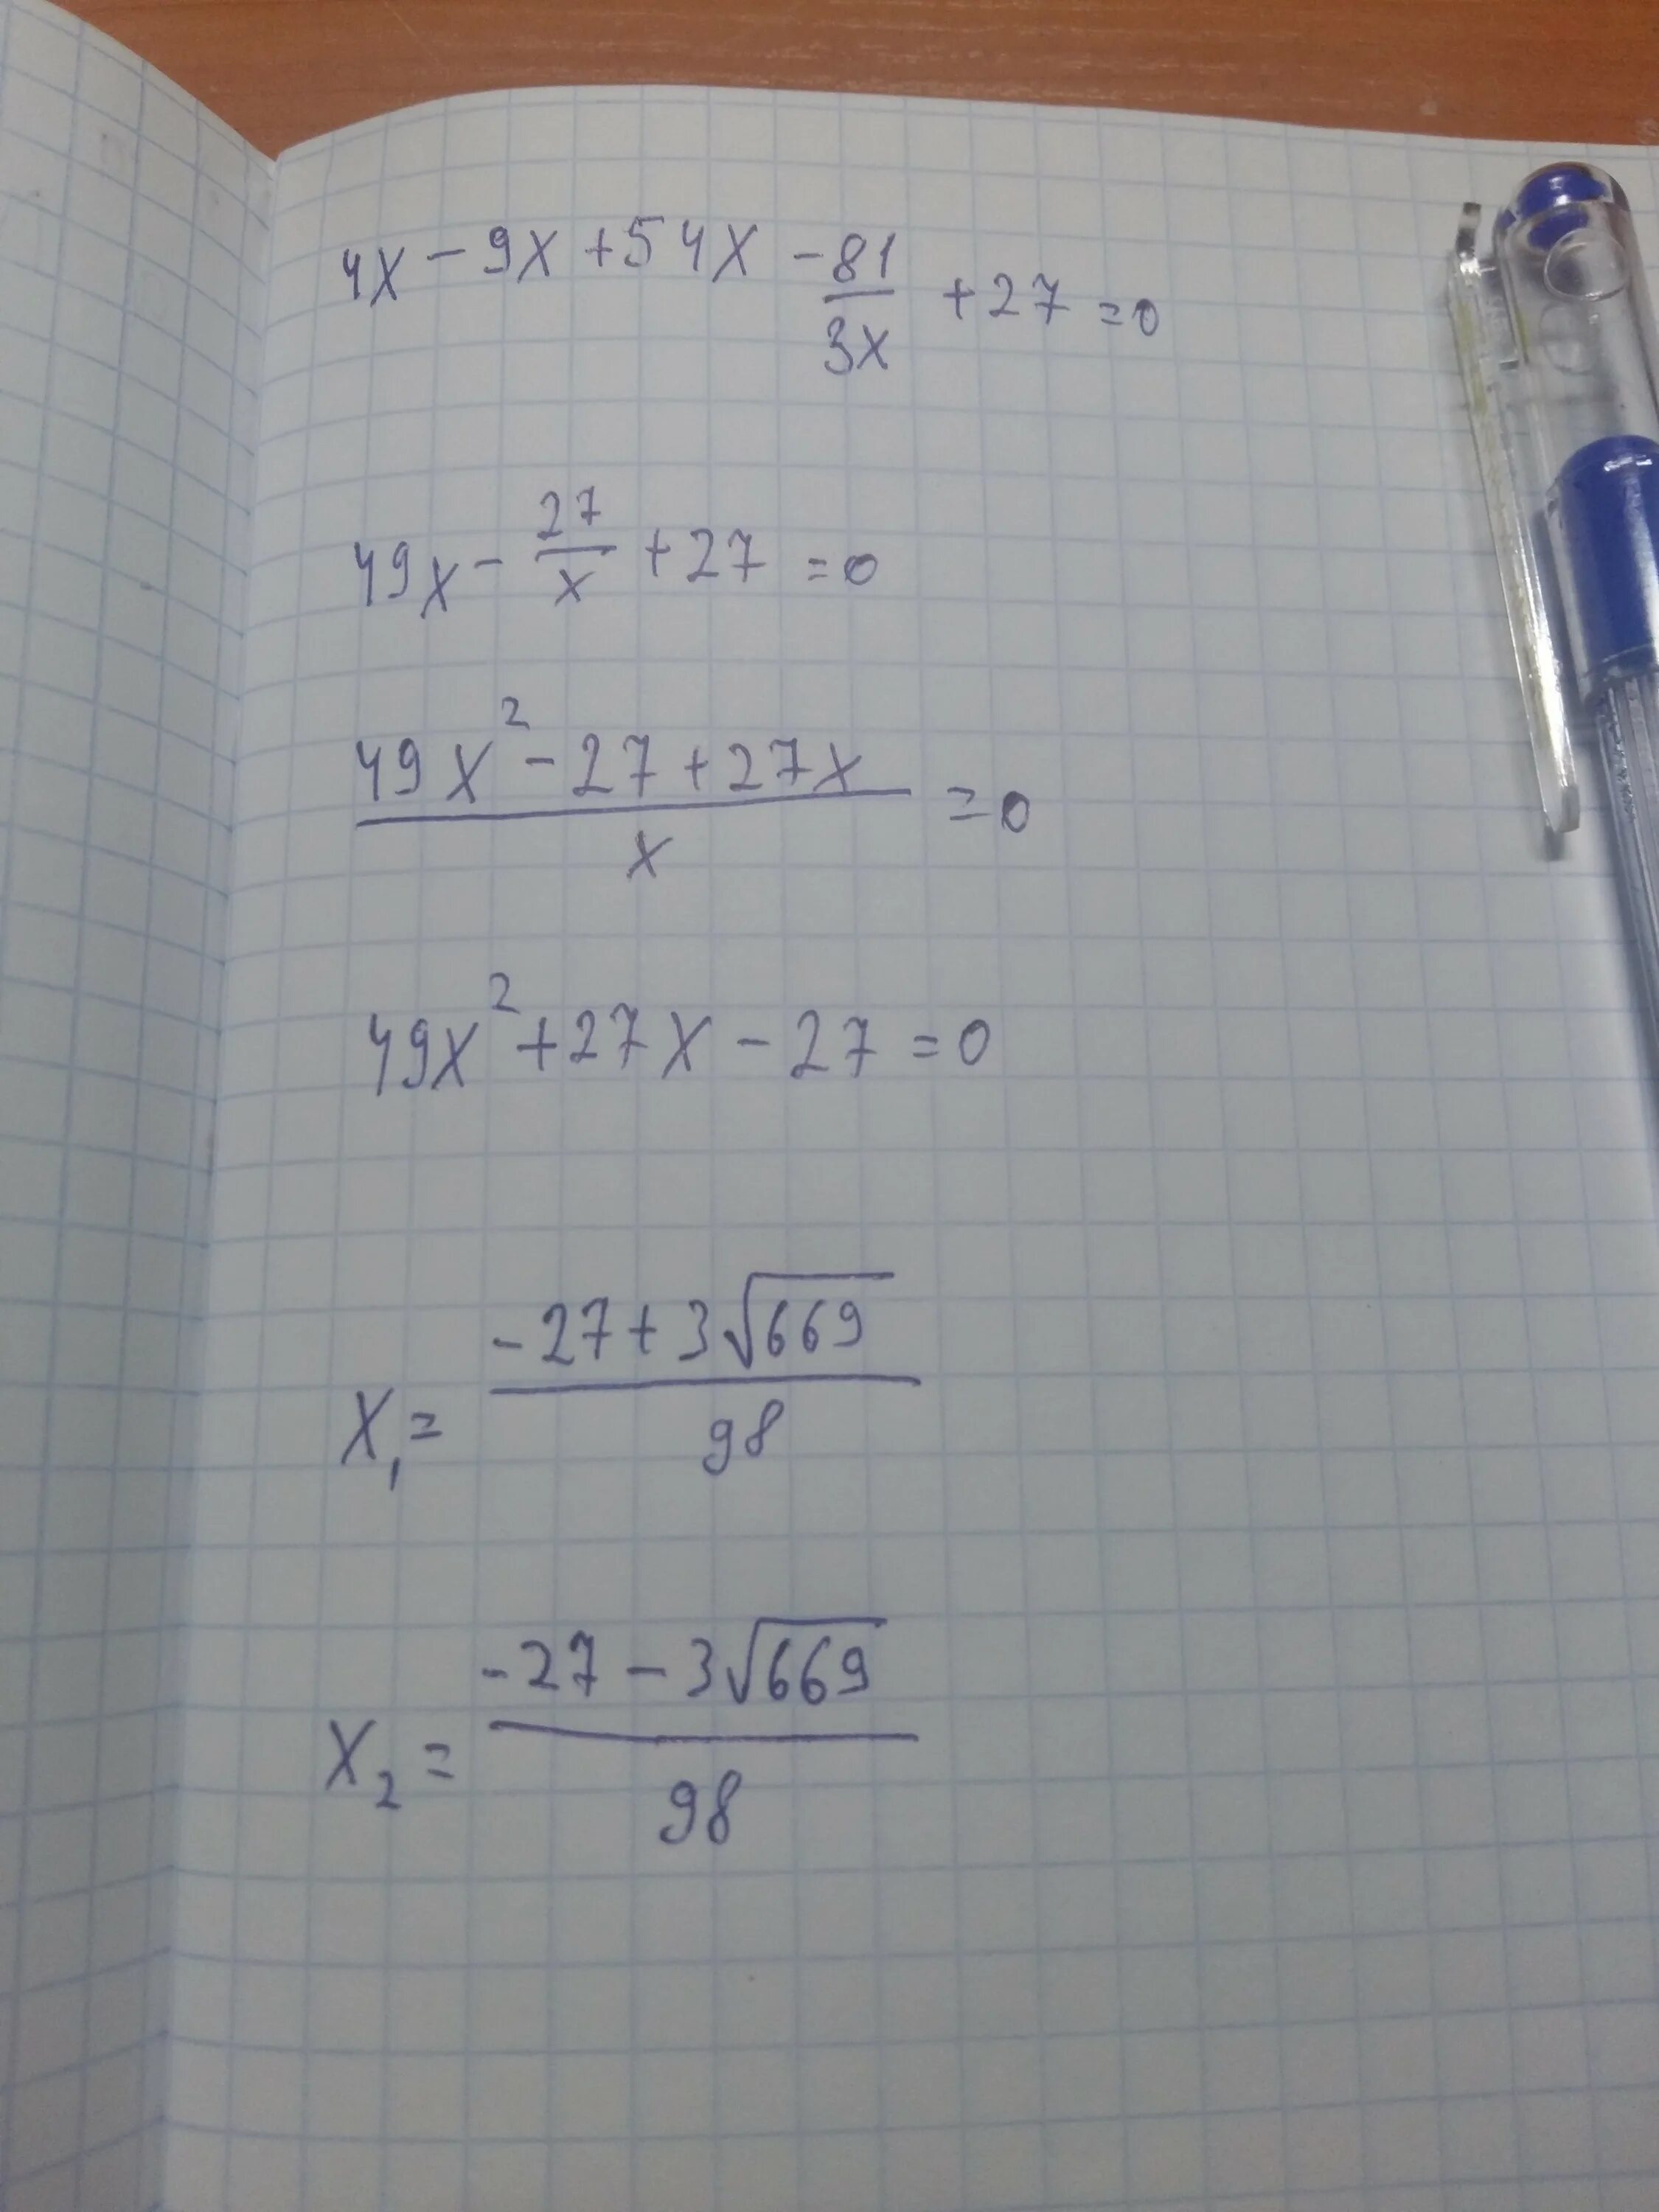 4x - 9x + 54x - 81/3x + 27 = 0
49x - 27/x + 27 = 0
49x² - 27 + 27x / x = 0
49x² + 27x - 27 = 0
x₁ = -27 + 3√669 / 98
x₂ = -27 - 3√669 / 98